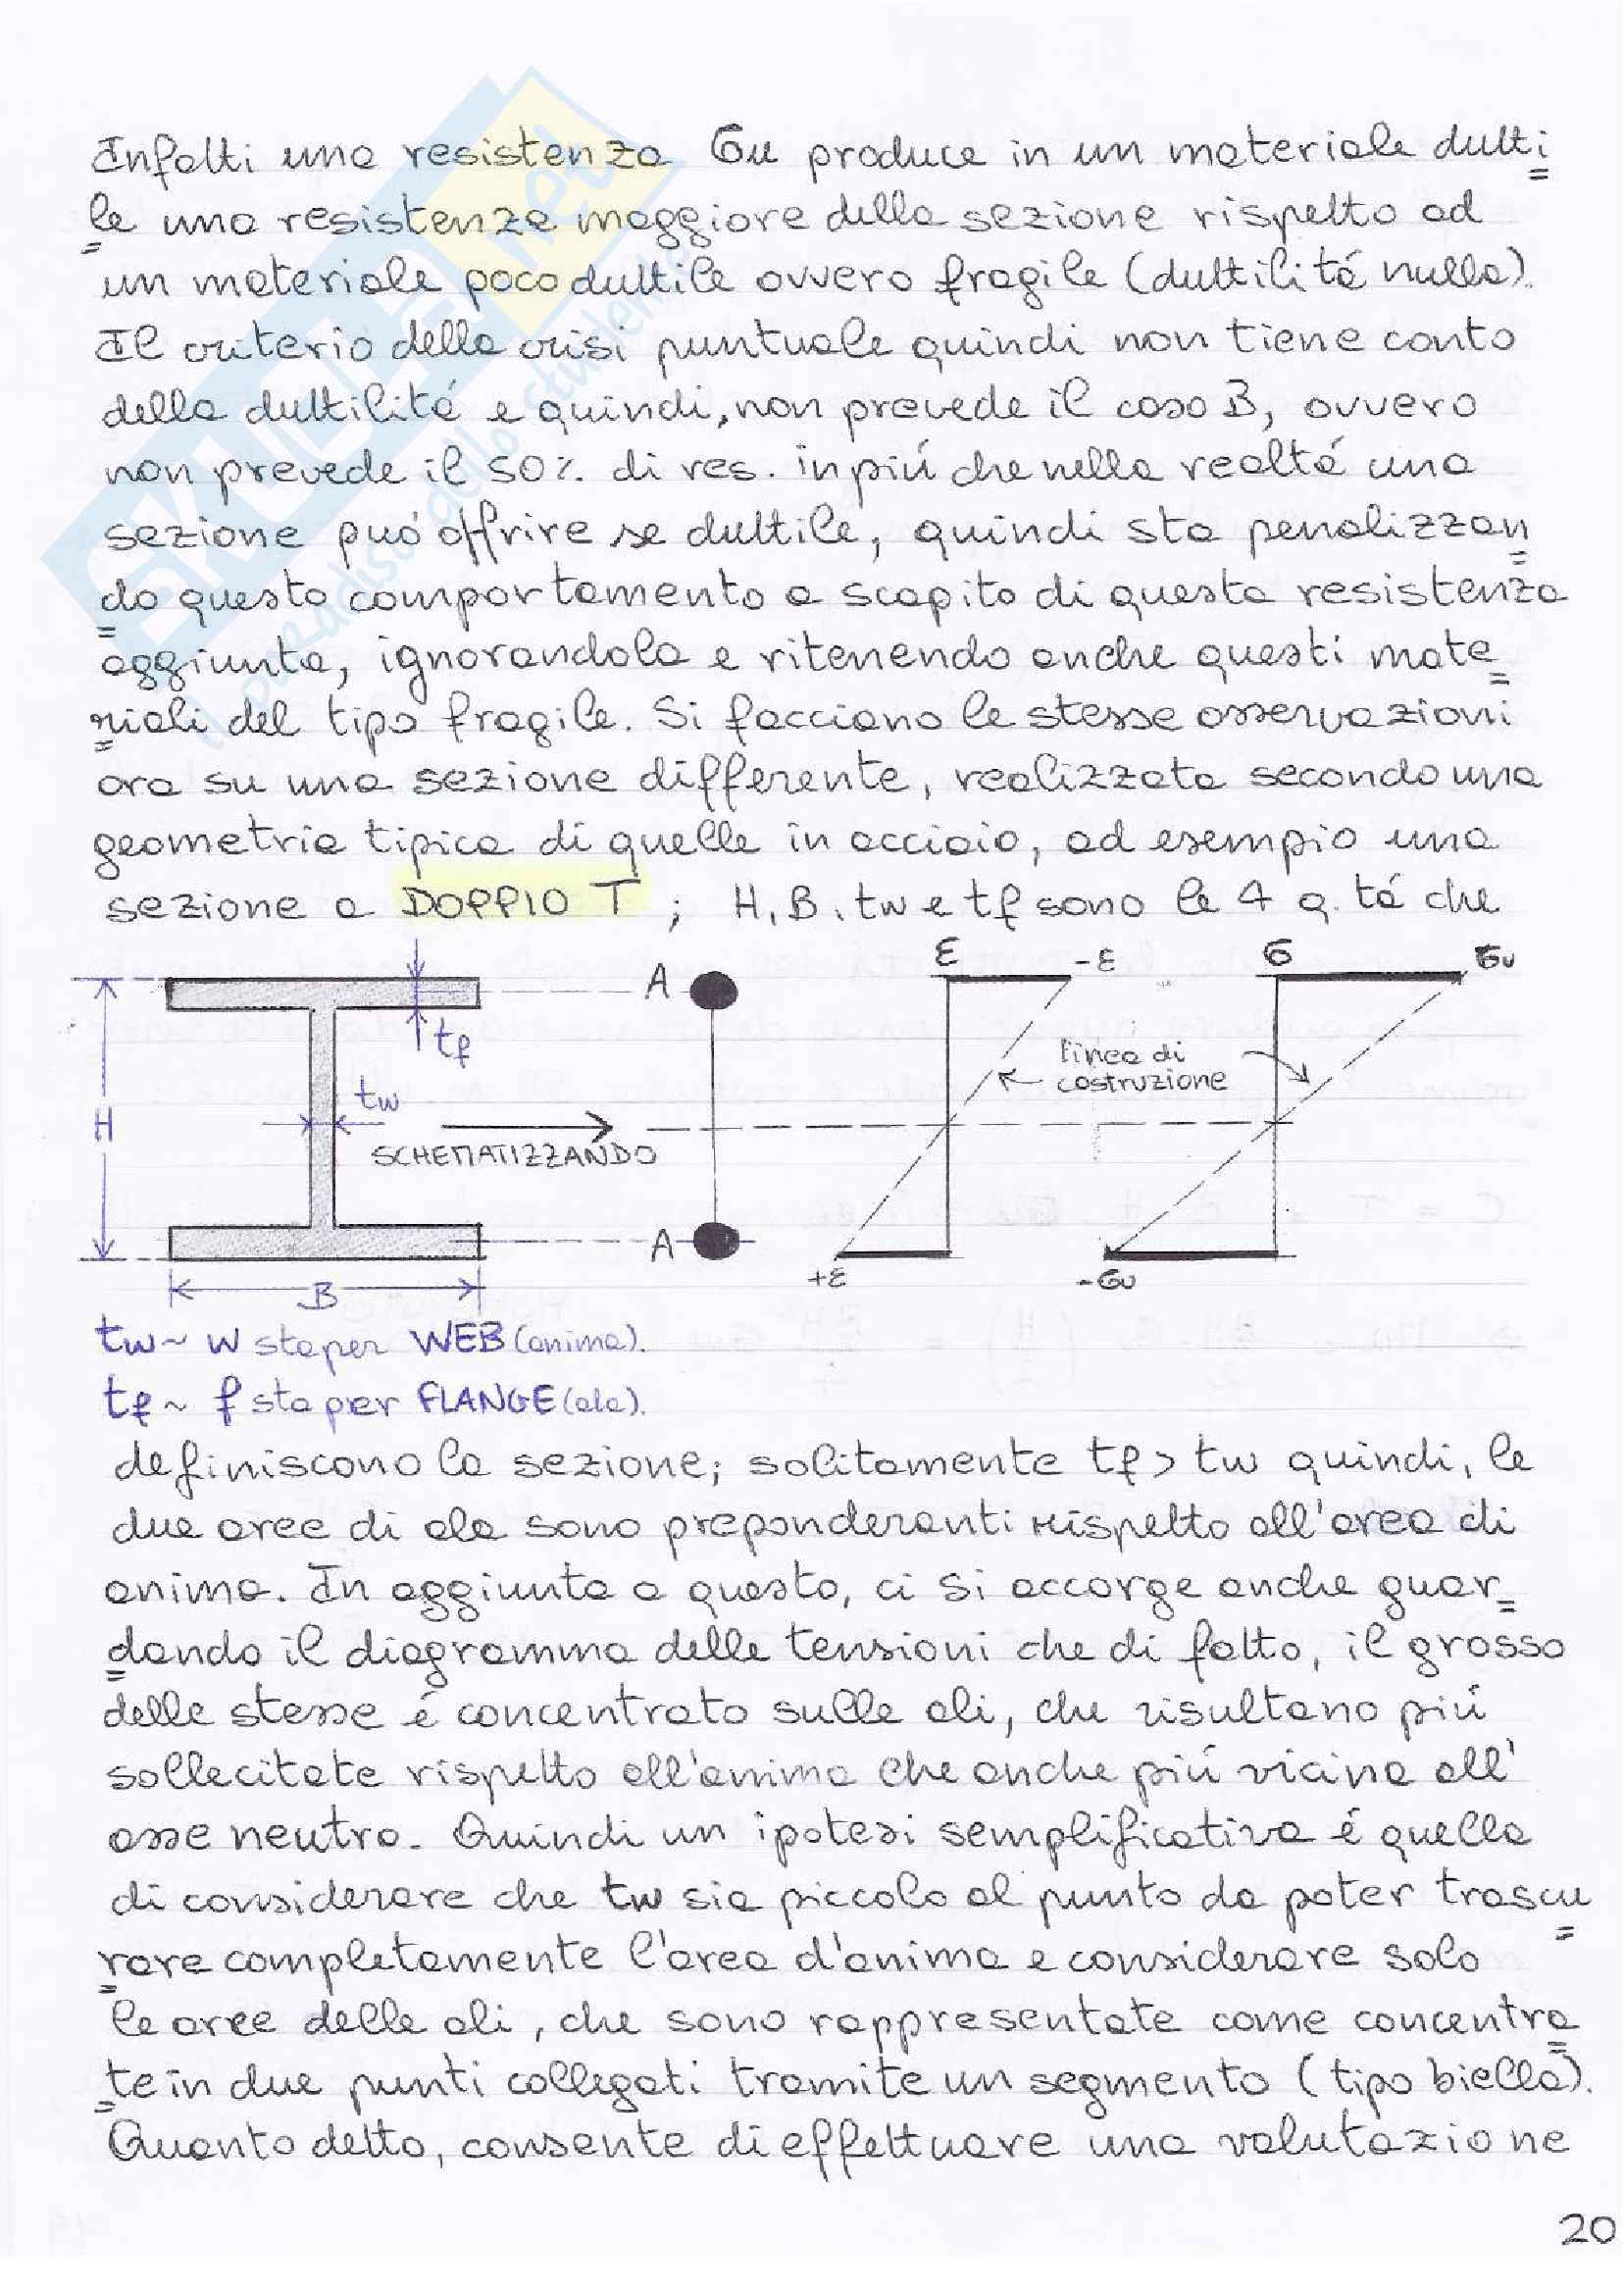 Infatti una resistenza σu produce in un materiale dutti
le una resistenza maggiore della sezione rispetto ad
un materiale poco duttile ovvero fragile (duttilitá nulla).
Il criterio della crisi puntuale quindi non tiene conto
della duttilitá e quindi, non prevede il caso B, ovvero
non prevede il 50% di res. in piú che nella realtá una
sezione puó offrire se duttile, quindi sta penalizzan
do questo comportamento a scapito di questa resistenza
aggiunta, ignorandola e ritenendo anche questi mate
riali del tipo fragile. Si facciano le stesse osservazioni
ora su una sezione differente, realizzata secondo una
geometria tipica di quelle in acciaio, ad esempio una
sezione a DOPPIO T ; H, B, tw e tf sono le 4 q.tá che
ε -ε σ σu
A
tf
linea di
costruzione
tw
H
SCHEMATIZZANDO
A
B
+ε -σu
tw ~ w sta per WEB (anima).
tf ~ f sta per FLANGE (ala).
definiscono la sezione; solitamente tf > tw quindi, le
due aree di ala sono preponderanti rispetto all'area di
anima. In aggiunta a questo, ci si accorge anche guar
dando il diagramma delle tensioni che di fatto, il grosso
delle stesse é concentrato sulle ali, che risultano piú
sollecitate rispetto all'anima che anche piú vicina all'
asse neutro. Quindi un ipotesi semplificativa é quella
di considerare che tw sia piccolo al punto da poter trascu
rare completamente l'area d'anima e considerare solo
le aree delle ali, che sono rappresentate come concentra
te in due punti collegati tramite un segmento (tipo biella).
Quanto detto, consente di effettuare una valutazione
20
SKUOLA.net
il paradiso dello studente